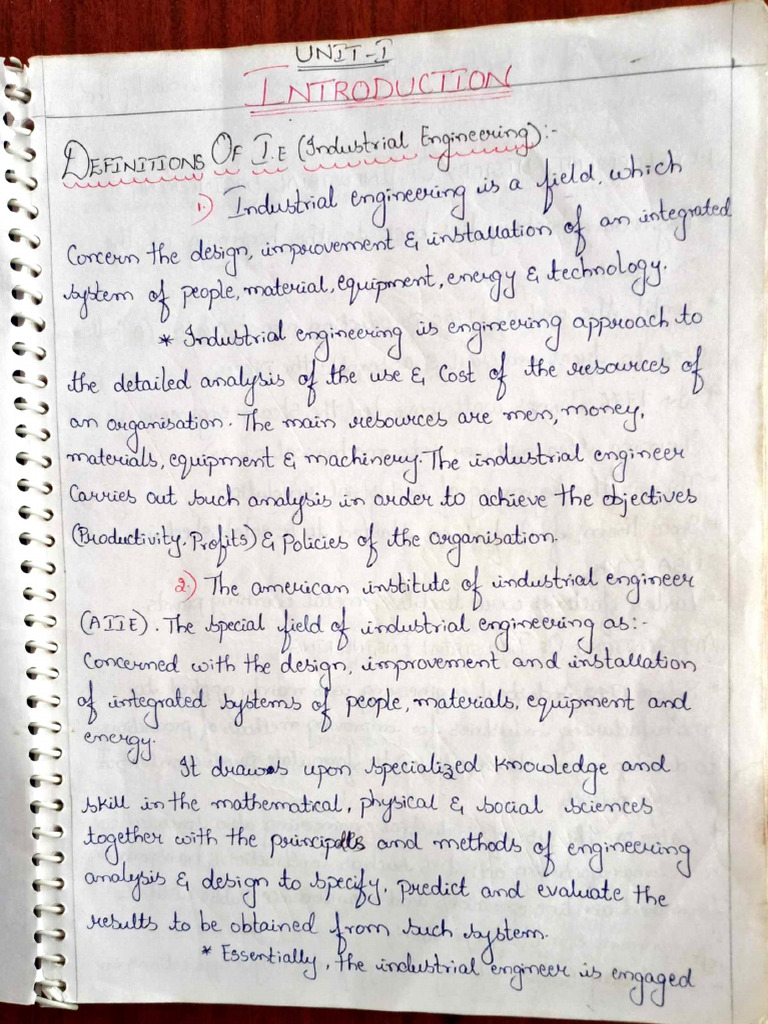 UNIT-I
INTRODUCTION
DEFINITIONS OF I.E (Industrial Engineering):-
1.) Industrial engineering is a field, which
Concern the design, improvement & installation of an integrated
system of people, material, equipment, energy & technology.
* Industrial engineering is engineering approach to
the detailed analysis of the use & Cost of the resources of
an organisation. The main resources are men, money,
materials, equipment & machinery. The industrial engineer
Carries out such analysis in order to achieve the objectives
(Productivity, Profits) & Policies of the organisation.
2.) The american institute of industrial engineer
(AIIE). The special field of industrial engineering as:-
Concerned with the design, improvement and installation
of integrated systems of people, materials, equipment and
energy.
It draws upon specialized knowledge and
skill in the mathematical, physical & social sciences
together with the principles and methods of engineering
analysis & design to specify, predict and evaluate the
results to be obtained from such system.
* Essentially, the industrial engineer is engaged